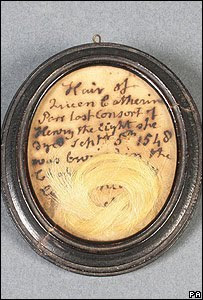 Hair of
Queen Catherine
Parr last Consort of
Henry the Eight she
dyed Septr. 5th 1548
was in the
PA